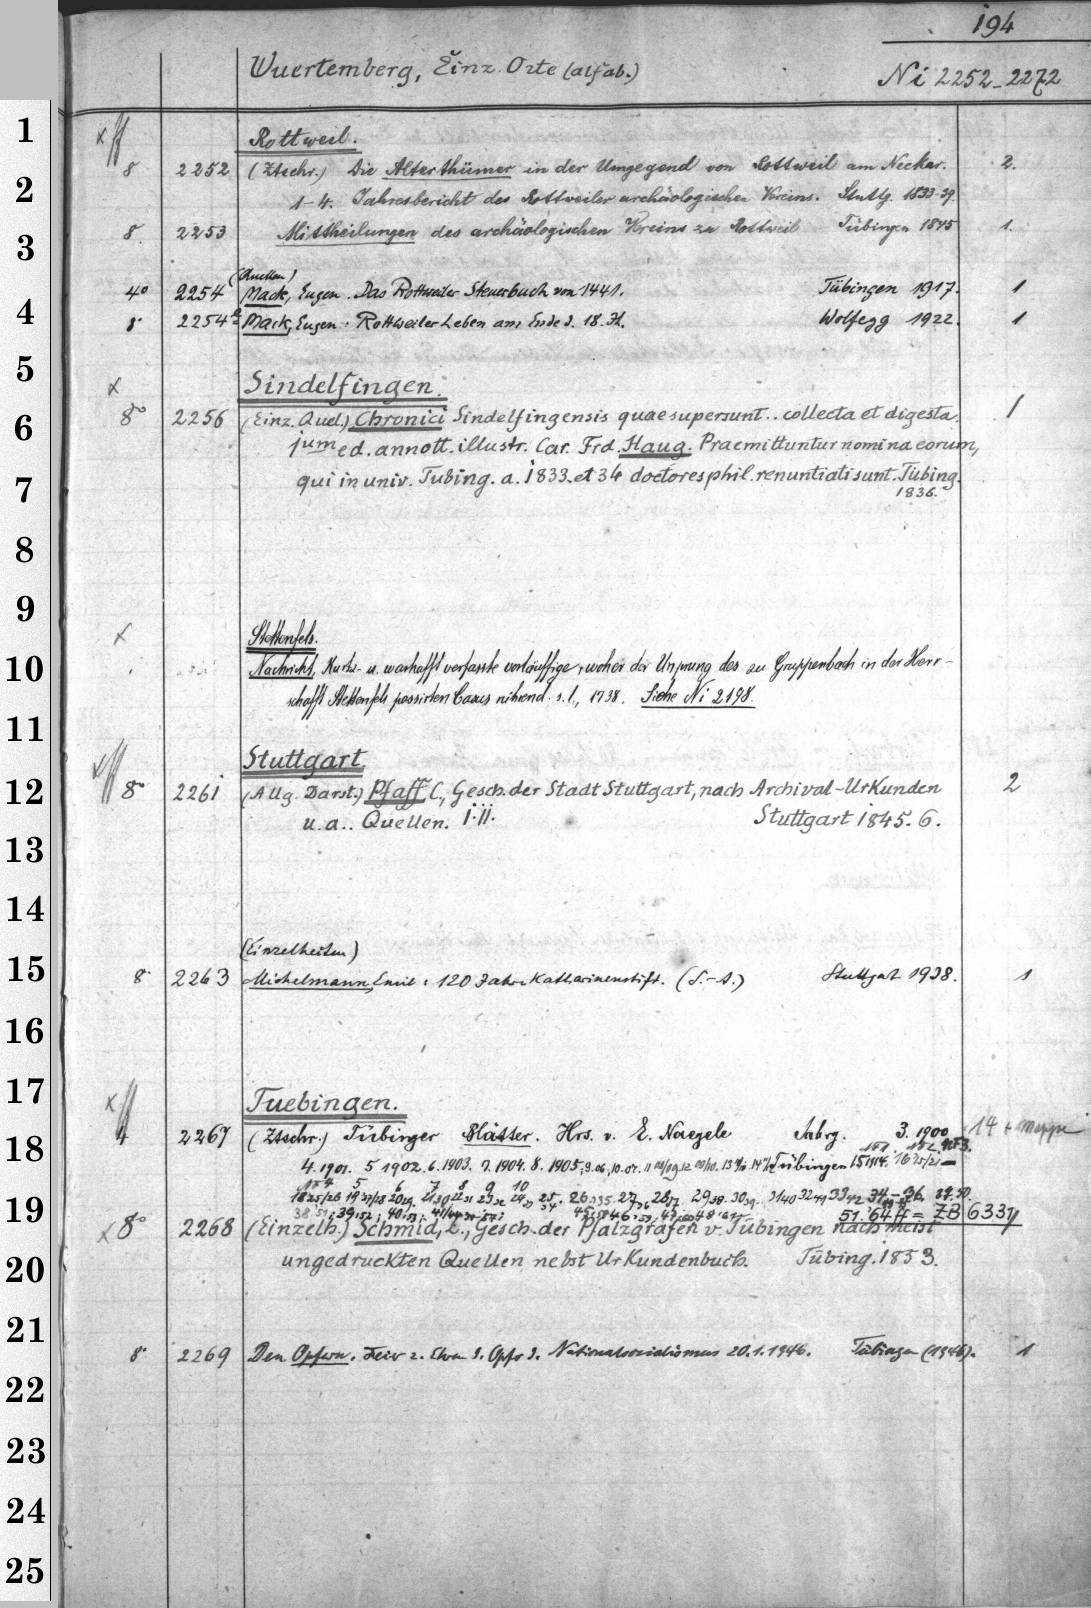 194
Wuertemberg, Einz. Orte (alfab.)
Ni 2252-2272
1
Rottweil.
8 2252 (Ztschr.) Die Alterthümer in der Umgegend von Rottweil am Neckar. 2.
2
1-4. Jahresbericht des Rottweiler archäologischen Vereins. Stuttg. 1833-39.
3
8. 2253 Mittheilungen des archäologischen Vereins zu Rottweil Tübingen 1845 1.
(Quellen)
4° 2254 Mack, Eugen. Das Rottweiler Steuerbuch von 1441. Tübingen 1917. 1
4
8° 2254a Mack, Eugen: Rottweiler Leben am Ende d. 18. Jh. Wolfegg 1922. 1
5
x Sindelfingen.
6
8° 2256 (Einz. Quel.) Chronici Sindelfingensis quae supersunt.. collecta et digesta. 1
jum ed. annott. illustr. Car. Frd. Haug. Praemittuntur nomina eorum,
7
qui in univ. Tubing. a. 1833. et 34 doctores phil. renuntiati sunt. Tübing.
1836.
8
9
x Stettenfels.
10
Nachricht, Kurtz- u. warhafft verfasste vorläuffige, woher der Ursprung des zu Gruppenbach in der Herr-
schafft Stettenfels passirten Casus rührend. s.l., 1738. Siehe Ni 2198.
11
Stuttgart.
12
8° 2261 (Allg. Darst.) Pfaff C., Gesch. der Stadt Stuttgart, nach Archival-Urkunden 2
u. a.. Quellen. I.II. Stuttgart 1845. 6.
13
14
(Einzelheiten)
15
8° 2263 Michelmann, Emil: 120 Jahre Katharinenstift. (S.-A.) Stuttgart 1938. 1
16
17
Tuebingen.
18
4 2267 (Ztschr.) Tübinger Blätter. Hrs. v. E. Naegele Jahrg. 3. 1900 14 + Mappe
4. 1901. 5 1902. 6. 1903. 7. 1904. 8. 1905. Tübingen
19
51. '64 ff = ZB 6337
x 8° 2268 (Einzelh.) Schmid, L., Gesch. der Pfalzgrafen v. Tübingen nach meist
20
ungedruckten Quellen, nebst Urkundenbuch. Tübing. 1853.
21
8° 2269 Den Opfern. Feier z. Ehren d. Opfer d. Nationalsozialismus 20.1.1946. Tübingen (1946). 1
22
23
24
25